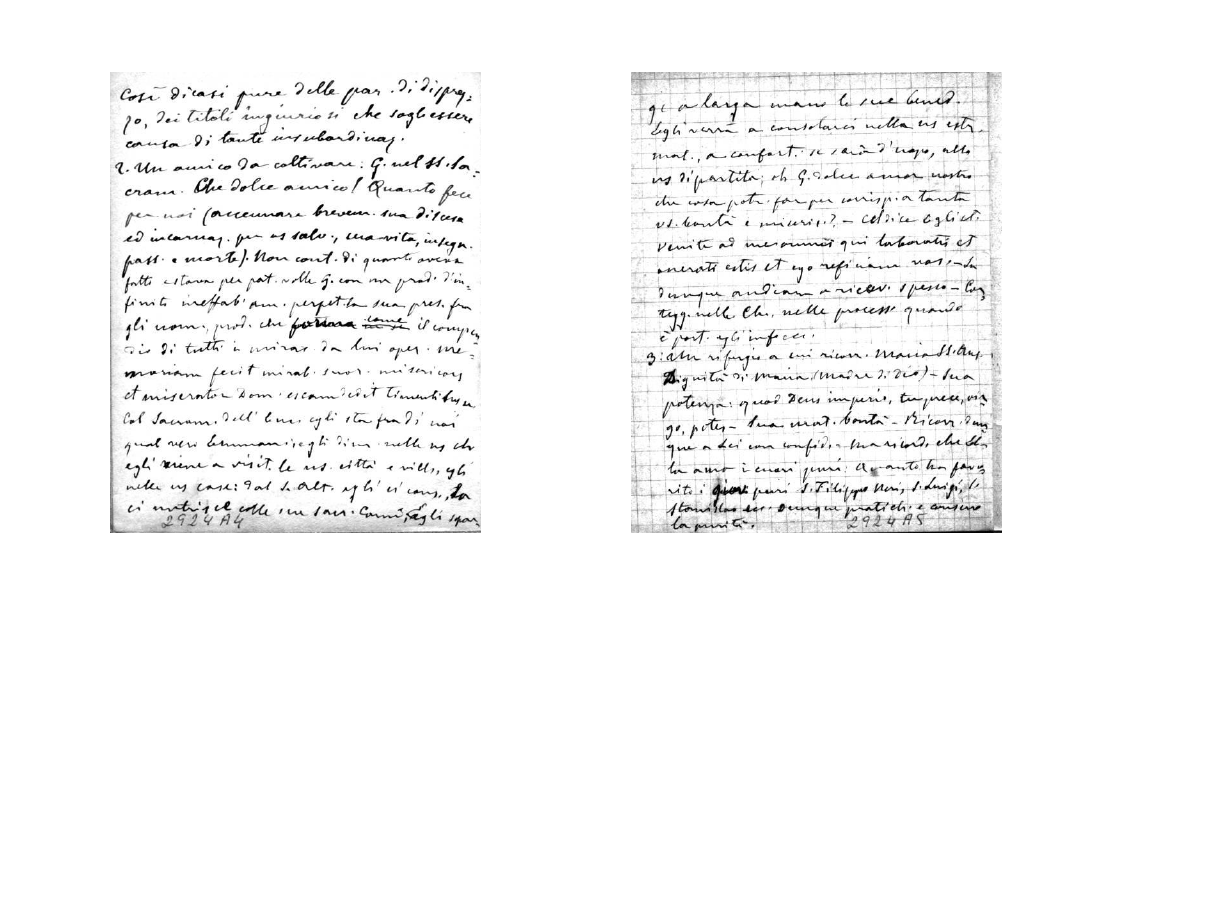 Così dicasi pure delle par. di dispreg-
zo, dei titoli ingiuriosi che sogl. essere
causa di tante insubordinaz.
2. Un amico da coltivare: G. nel SS. Sa-
cram. Che dolce amico! Quanto fece
per noi (accennare brevem. sua discesa
ed incarnaz. per ns salv., sua vita, insegn.
pass. e morte). Non cont. di quanto aveva
fatto e stava per pat. volle G. con un prod. d'in-
finito ineffab. am. perpet. la sua pres. fra
gli uom., prod. che come il compen
dio di tutti i mirac. da lui oper. Me-
moriam fecit mirab. suor. misericors
et miserator Dom. escam dedit timentibus se
Col Sacram. dell' Euc. egli sta fra di noi
qual vero Emmanu.; egli dim. nelle ns ch
egli viene a visit. le ns. città e vill., egli
nelle ns case; dal S. Alt. egli ci cons.,
ci nutrisce colle sue sacr. Carni, Egli spar
2924 A4
ge a larga mano le sue bened.
Egli verrà a consolarci nella ns estr.
mal., a confort. se sarà d'uopo, alla
ns dipartita; oh G. dolce amor nostro
che cosa potr. far per corrisp. a tanta
vs. bontà e miseric.? - Ci dice Egli st.
Venite ad me omnes qui laboratis et
onerati estis et ego reficiam vos. -
dunque andiam a ricev. spesso - Cor
tegg. nelle Ch., nelle process. quando
è port. agli infermi.
3: Un rifugio a cui ricorr. Maria SS. Aus.
Dignità di Maria (Madre di Dio) - Sua
potenza: quod Deus imperio, tu prece, vir
go, potes - Sua mat. bontà - Ricorr. dun
que a Lei con confid. - ma ricord. che El-
la ama i cuori puri: Quanto ha favo
rito i cuori puri S. Filippo Neri, S. Luigi, S.
Stanislao ecc. Dunque pratich. e conserv
la purità.
2924 A5